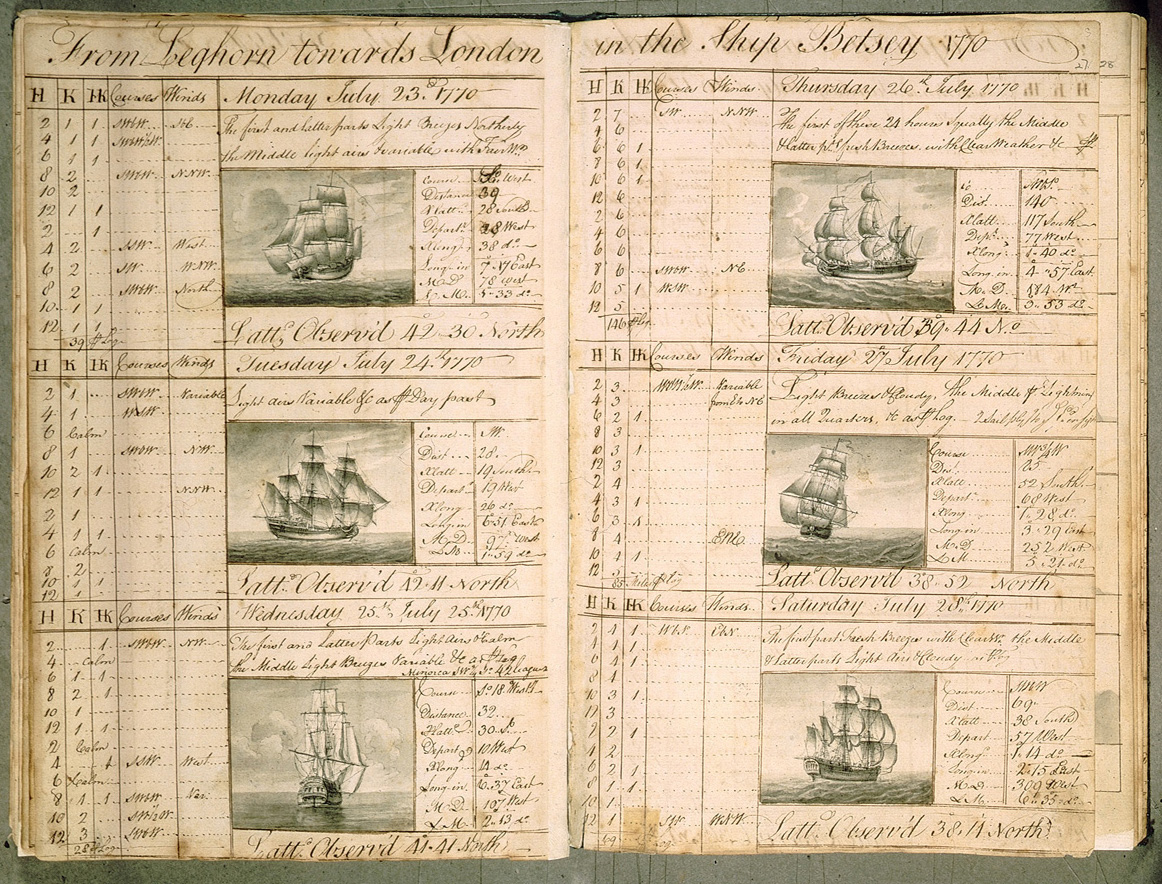 From Leghorn towards London
H K HK Courses Winds Monday July 23.d 1770
2 1 1 SWbW
4 1 1
6 1 1
8 2 SWbW N.N.W.
10 2
12 1 1
2 1
4 2 SSW West
6 2 SW WNW
8 2 SWbW North
10 1 1
12 1 1
39 pr Log
The first and latter parts Light Breezes Northerly
the Middle light airs & variable with Fair Wr.
Course West
Distance 39
Xlatt 28 South
Depart 28 West
Xlong 38 do
Long in 7..17 East
M.D. 78 West
L.M. 1..33 do
Latt. Observ'd 42..30 North
H K HK Courses Winds Tuesday July 24.th 1770
2 1 SWbW Variable
4 1 WSW
6 Calm
8 1 SWbW NW
10 2 1
12 1 1 NNW
2 1
4 1 1
6 Calm
8 2
10 1 1
12 1
Light airs Variable &c as pr Day past
Course SW
Dist 28
Xlatt 19 South
Depart 19 West
Xlong 26 do
Long in 6..51 East
M.D. 97 West
L.M. 1..59 do
Latt. Observ'd 42..11 North
H K HK Courses Winds Wednesday 25.th July 25.th 1770
2 1 SWbW NW
4 Calm
6 1 1
8 2
10 1
12 1 1
2 Calm
4 1 SSW West
6 Calm
8 1 1 SWbW
10 2
12 3 SWbW
28 pr Log
The first and Latter Parts Light Airs & Calm
the Middle Light Breezes Variable &c as pr Log
Minorca
Course So 18 West
Distance 32
Xlatt 30 So
Depart 10 West
Xlong 14 do
Long in 6..37 East
M.D. 107 West
L.M. 2..13 do
Latt. Observ'd 41..41 North
in the Ship Betsey 1770
27 28
H K HK Courses Winds Thursday 26.th July 1770
2 7 SW NNW
4 6
6 6 1
8 6 1
10 6 1
12 6
2 6
4 6
6 6
8 6 SWbW NE
10 5 1 WSW
12 5
146 pr Log
The first of these 24 hours Squally the Middle
& Latter pts fresh Breezes with Clear Weather &c
Dist 140
Xlatt 117 South
Dept 77 West
Xlong 1..40 do
Long in 4..57 East
M.D. 184 Wt
L.M. 3..53 do
Latt. Observ'd 39..44 No
H K HK Courses Winds Friday 27 July 1770
2 3 Variable
4 3 from E to NE
6 2 1
8 3
10 3 1
12 3
2 4
4 3 1
6 3 1
8 4 ENE
10 4 1
12 3
85 Miles pr Log
Light Breezes & Cloudy, the Middle pt Lightning
in all Quarters, &c as pr Log
Course
Dist
Xlatt 52 South
Depart 68 West
Xlong 1..28 do
Long in 3..29 East
M.D. 252 West
L.M. 5..21 do
Latt. Observ'd 38..52 North
H K HK Courses Winds Saturday July 28.th 1770
2 4 1 WbS EbN
4 4 1
6 4 1
8 4
10 3 1
12 3
2 2 1
4 2
6 2 1
8 1 1
10 1
12 1 SW WNW
The first part Fresh Breezes with Clear Wr. the Middle
& Latter parts Light Airs & Cloudy as pr Log
Course SWbW
Dist 69
Xlatt 38 South
Depart 57 West
Xlong 1..14 do
Long in 2..15 East
M.D. 309 West
L.M. 6..35 do
Latt. Observ'd 38..14 North